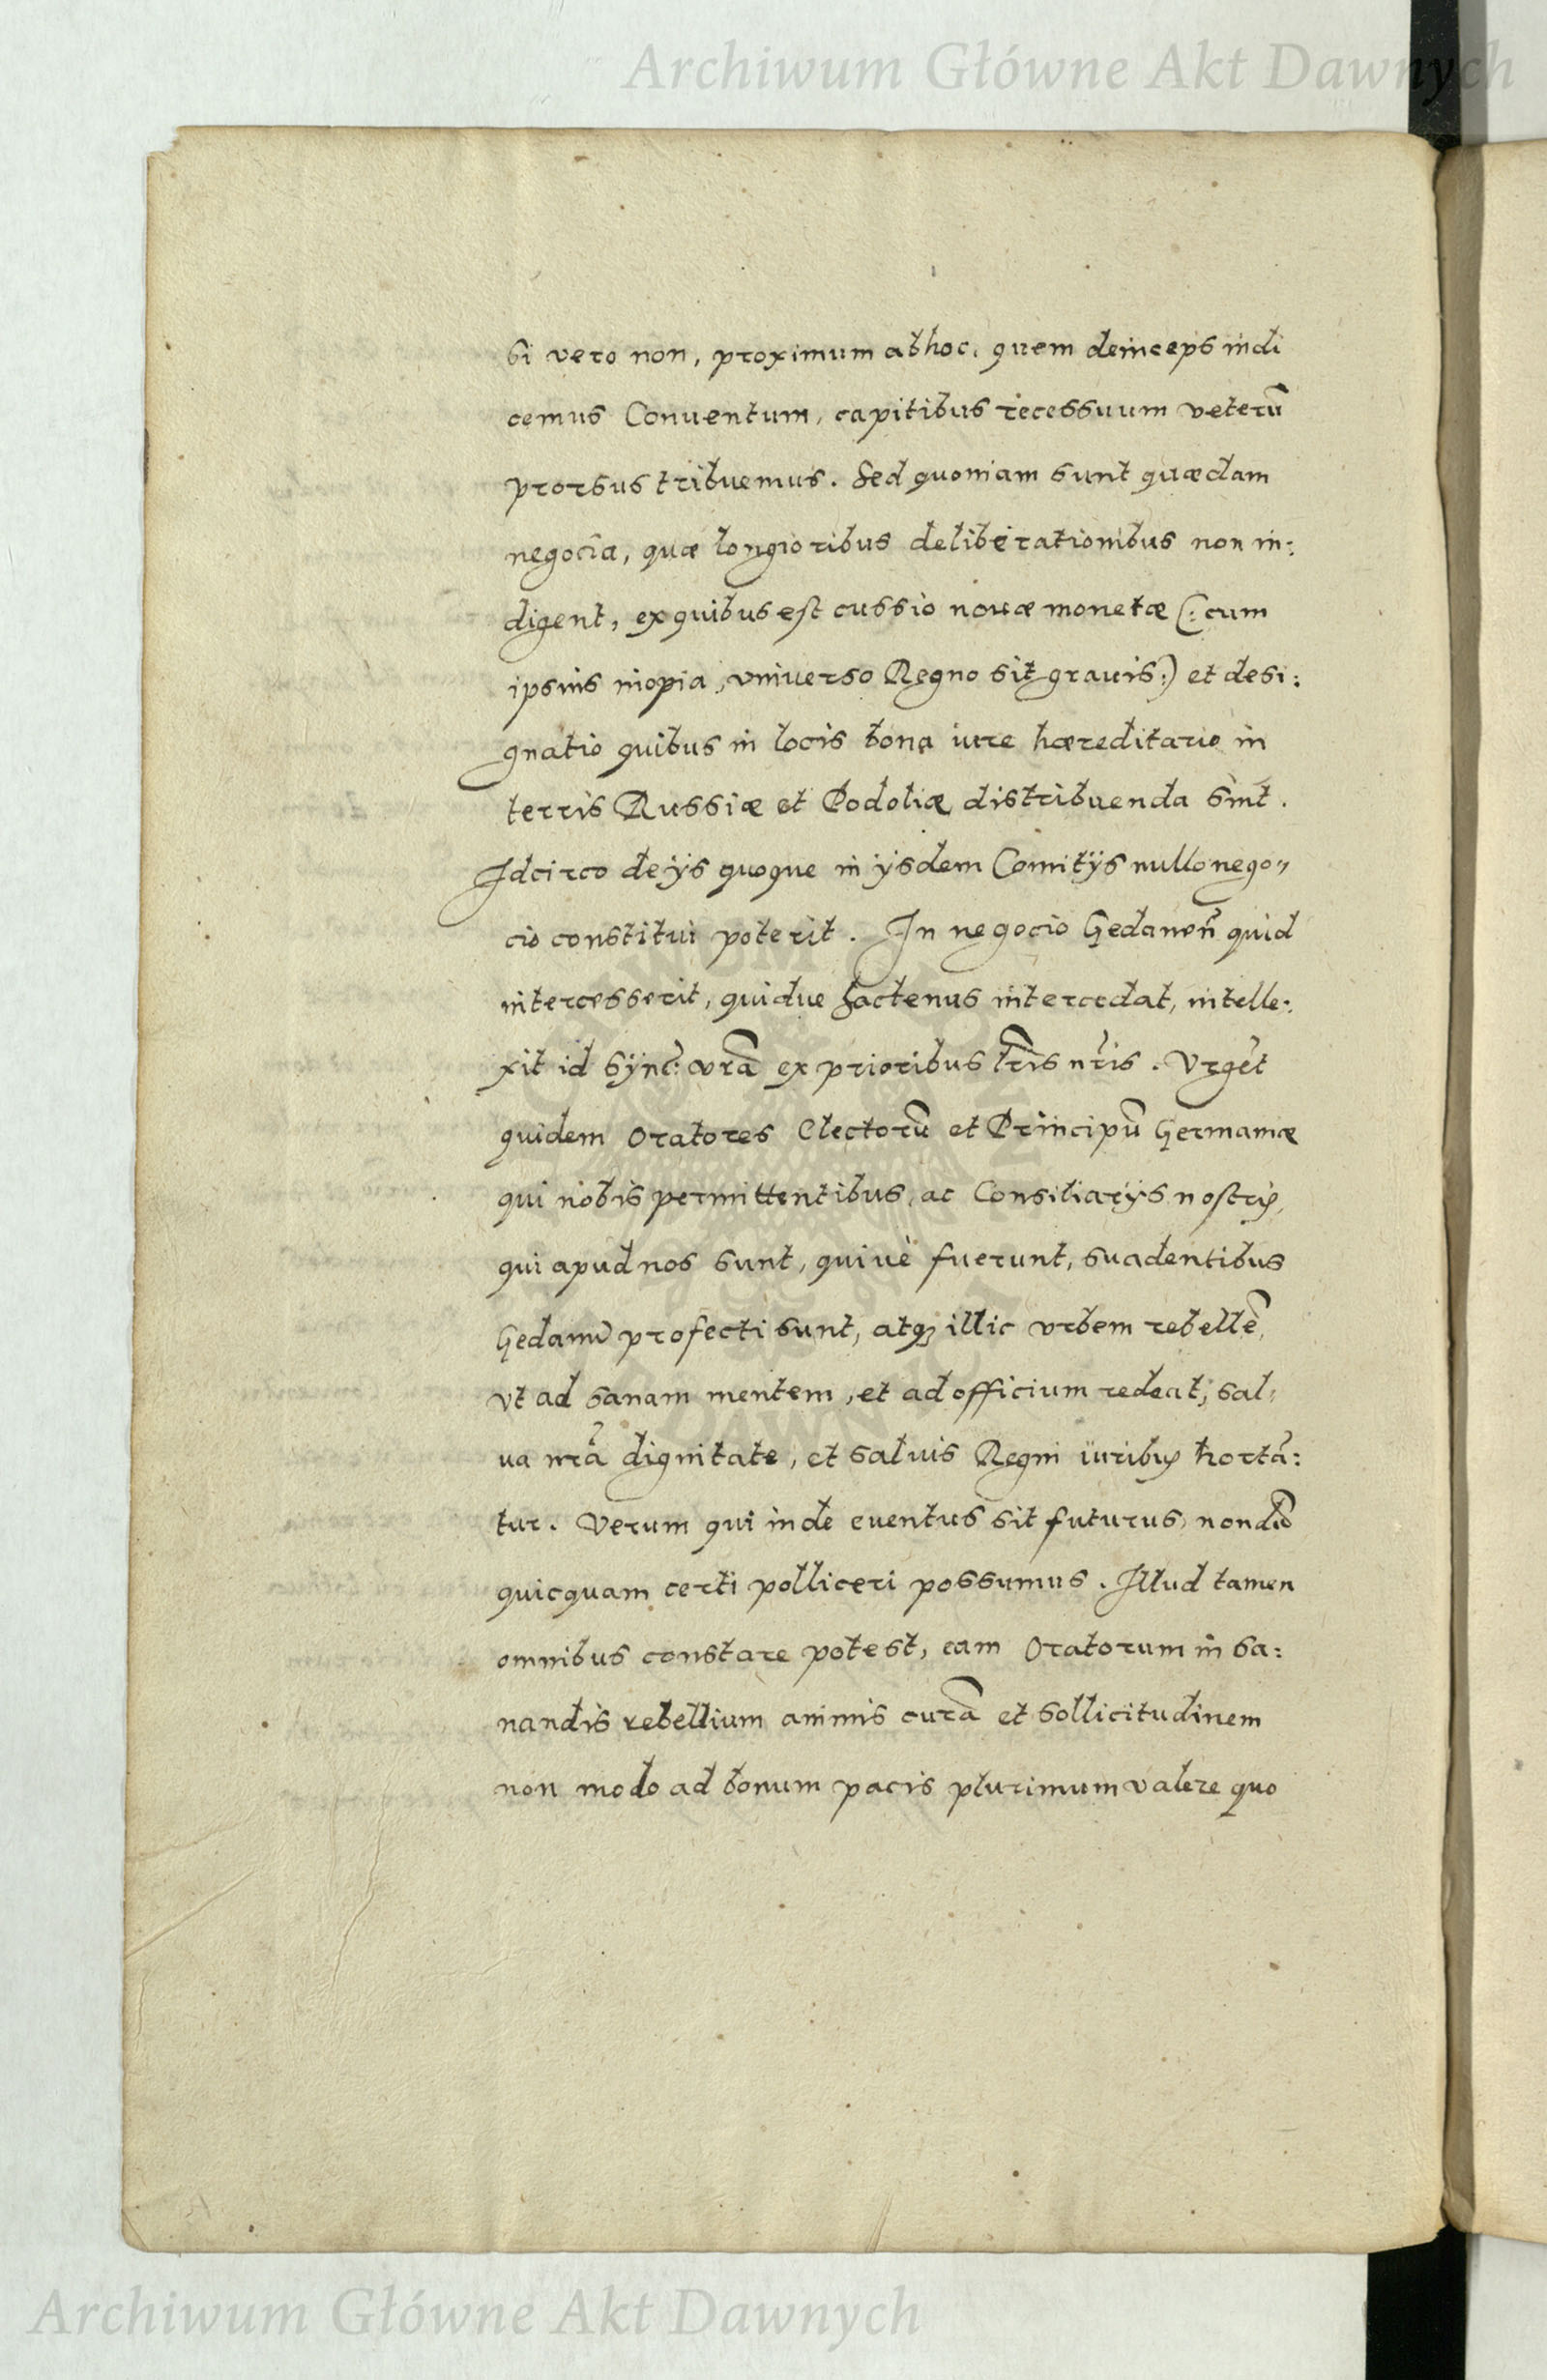 Archiwum Główne Akt Dawnych
Si vero non, proximum ab hoc, quem deinceps indi
cemus Conuentum, capitibus recessuum veterū
prorsus tribuemus. Sed quoniam sunt quædam
negocia, quæ longioribus deliberationibus non in:
digent, ex quibus est cussio nouæ monetæ (: cum
ipsius inopia, vniuerso Regno sit grauis:) et desi:
gnatio quibus in locis bona iure hæreditario in
terris Russiæ et Podoliæ distribuenda sint.
Idcirco de ijs quoque in ijsdem Comitijs nullo nego„
cio constitui poterit. In negocio Gedaneñ quid
intercesserit, quidue hactenus intercedat, intelle:
xit id Sync: vrã ex prioribus lr̃is nr̃is. Vrgẽt
quidem Oratores Electorũ et Principũ Germaniæ
qui nobis permittentibus, ac Consiliarijs nostris,
qui apud nos sunt, quiuè fuerunt, suadentibus
Gedanũ profecti sunt, atq₃ illic vrbem rebellẽ,
vt ad sanam mentem, et ad officium redeat, sal,
ua nrã dignitate, et saluis Regni iuribus hortã:
tur. Verum qui inde euentus sit futurus, nondũ
quicquam certi polliceri possumus. Illud tamen
omnibus constare potest, eam Oratorum in sa:
nandis rebellium animis curã et sollicitudinem
non modo ad bonum pacis plurimum valere quo
Archiwum Główne Akt Dawnych